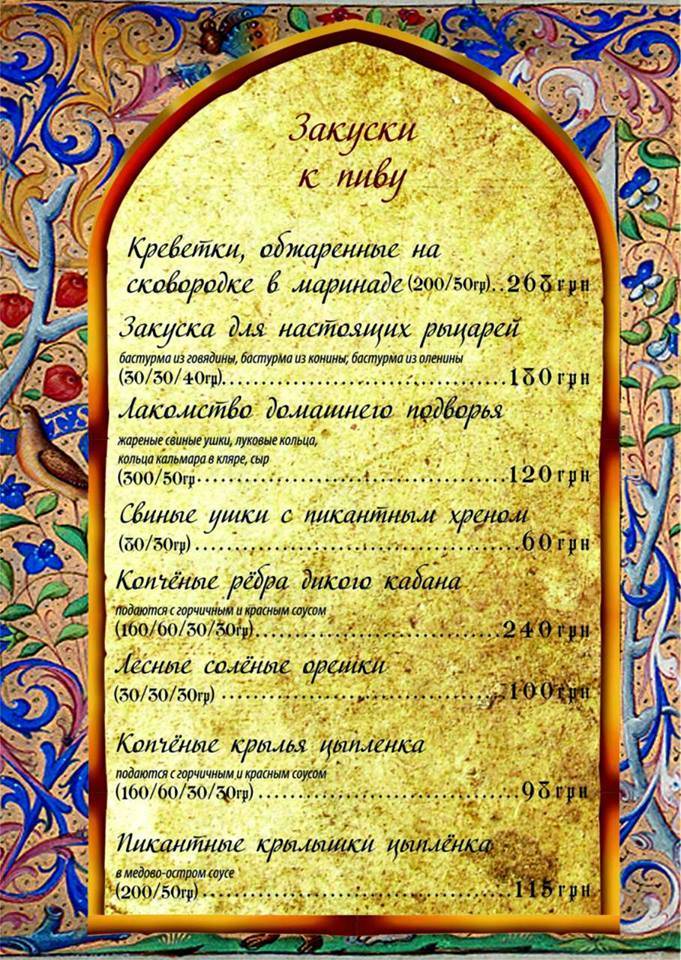 Закуски
к пиву
Креветки, обжаренные на
сковородке в маринаде (200/50гр)..268грн
Закуска для настоящих рыцарей
бастурма из говядины, бастурма из конины, бастурма из оленины
(30/30/40гр)..................................180грн
Лакомство домашнего подворья
жареные свиные ушки, луковые кольца,
кольца кальмара в кляре, сыр
(300/50гр......................................120грн
Свиные ушки с пикантным хреном
(80/30гр).......................................60грн
Копчёные рёбра дикого кабана
подаются с горчичным и красным соусом
(160/60/30/30гр)..............................240грн
Лесные солёные орешки
(30/30/30гр)...................................100грн
Копчёные крылья цыпленка
подаются с горчичным и красным соусом
(160/60/30/30гр)...............................98грн
Пикантные крылышки цыплёнка
в медово-остром соусе
(200/50гр).....................................115грн